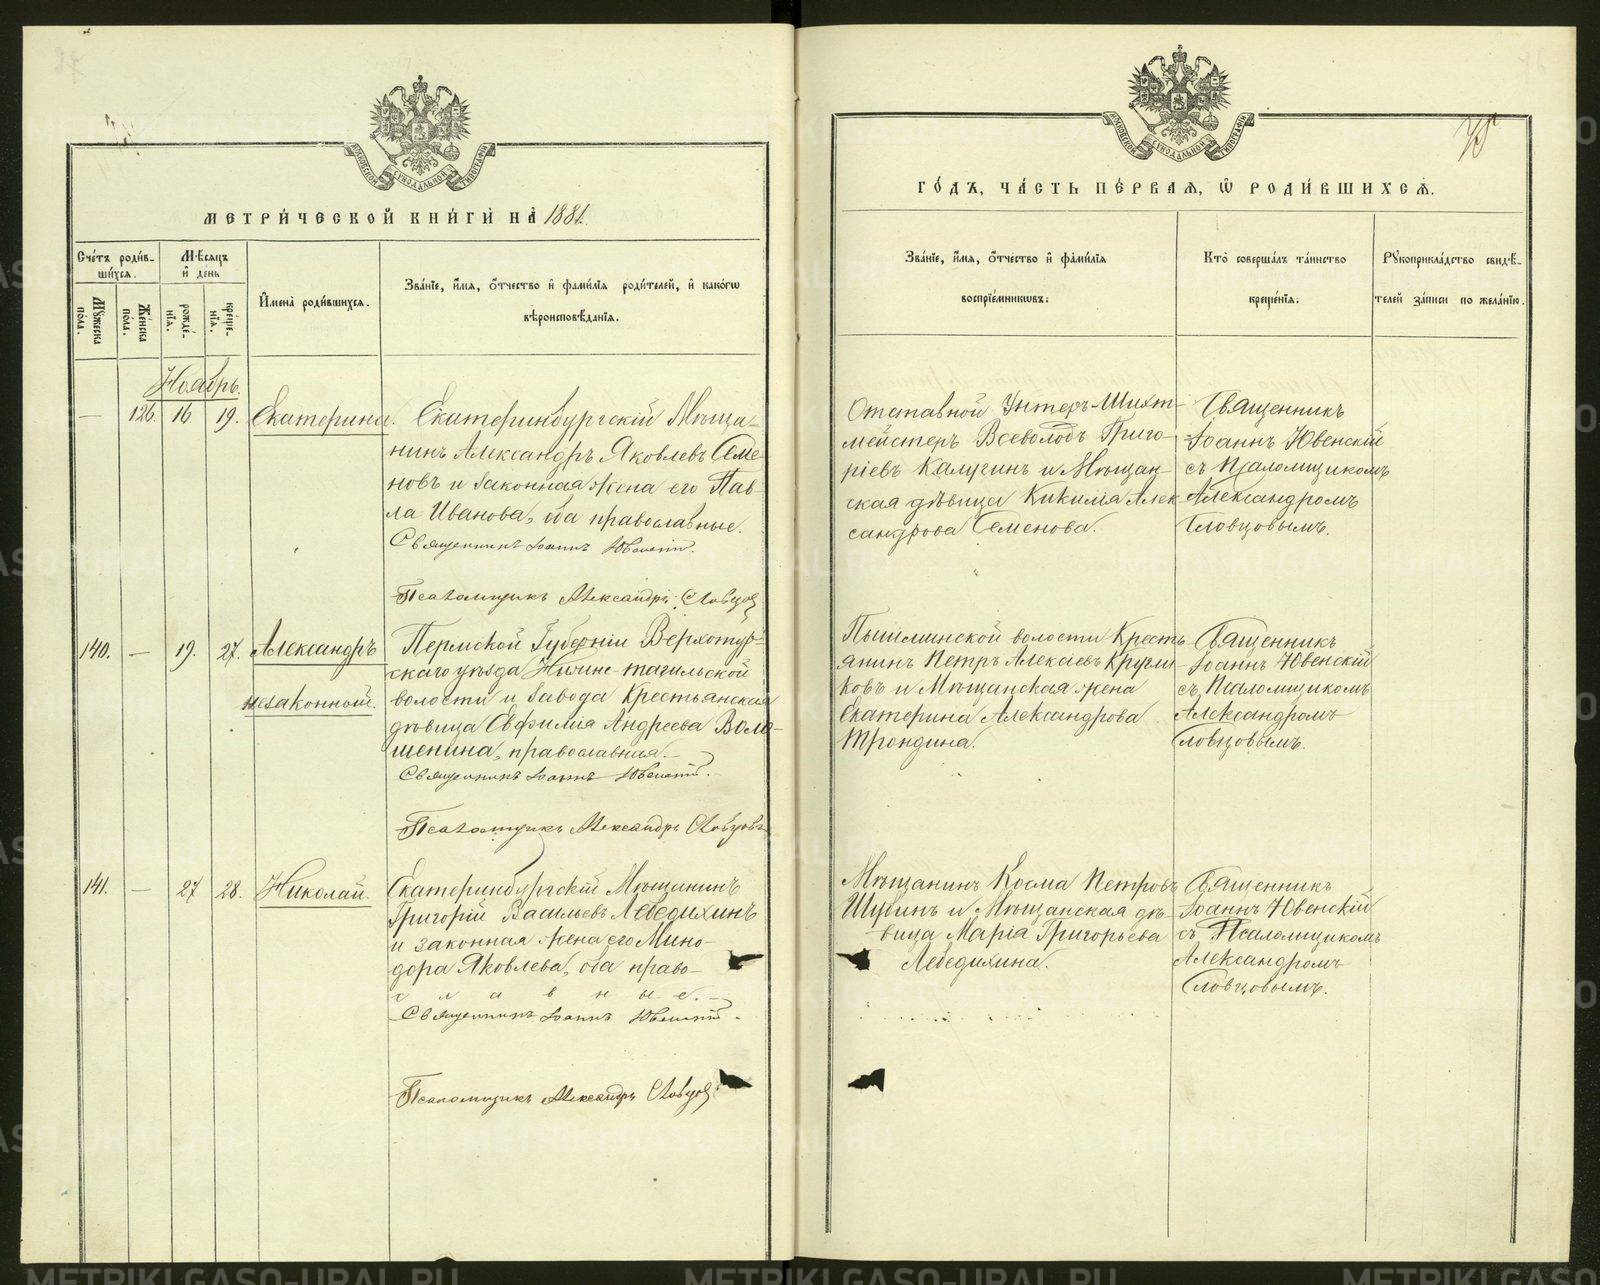 МЕТРИ́ЧЕСКОЙ КНИ́ГИ НА̀ 1881.
Сче́тъ роди́вшихся.
Мѣ́сяцъ и҆ де́нь
Му́жеска по́ла.
Же́нска по́ла.
рожде́нїя.
креще́нїя.
И҆мена̀ роди́вшихся.
Зва́нїе, и҆́мя, ѻ҆́тчество и҆ фами́лїя роди́телей, и҆ како́гѡ
вѣроисповѣ́данїя.
Ноябрь.
— 126. 16 19. Екатерина.
Екатеринбургскій Мѣща-
нинъ Александръ Яковлевъ Семе-
новъ и законная жена его Пав-
ла Иванова, оба православные.
Священникъ Іоаннъ Ювенскій.
Псаломщикъ Александръ Словцовъ
140. — 19. 27. Александръ
незаконной.
Пермской Губерніи Верхотур-
скаго уѣзда Нижне-тагильской
волости и завода Крестьянская
дѣвица Евфимія Андреева Воло-
шенина, православная.
Священникъ Іоаннъ Ювенскій.
Псаломщикъ Александръ Словцовъ
141. — 27 28. Николай.
Екатеринбургскій Мѣщанинъ
Григорій Васильевъ Лебедихинъ
и законная жена его Мино-
дора Яковлева, оба право-
славные.
Священникъ Іоаннъ Ювенскій.
Псаломщикъ Александръ Словцовъ
75
ГО́ДЪ, ЧА́СТЬ ПЕ́РВАЯ, Ѡ҆ РОДИ́ВШИХСЯ.
Зва́нїе, и҆́мя, ѻ҆́тчество и҆ фами́лїя
воспрїе́мниковъ.
Кто̀ соверша́лъ та́инство
креще́нїя.
Рꙋкоприкла́дство свидѣ́-
телей за́писи по жела́нїю.
Отставной Унтеръ-Шихт-
мейстеръ Всеволодъ Григо-
ріевъ Калугинъ и Мѣщан-
ская дѣвица Кикилія Алек-
сандрова Семенова.
Священникъ
Іоаннъ Ювенскій
съ Псаломщикомъ
Александромъ
Словцовымъ.
Пышминской волости Кресть-
янинъ Петръ Алексіевъ Кругли-
ковъ и Мѣщанская жена
Екатерина Александрова
Трондина.
Священникъ
Іоаннъ Ювенскій
съ Псаломщикомъ
Александромъ
Словцовымъ.
Мѣщанинъ Косма Петровъ
Шубинъ и Мѣщанская дѣ-
вица Марія Григорьева
Лебедихина.
Священникъ
Іоаннъ Ювенскій
съ Псаломщикомъ
Александромъ
Словцовымъ.
METRIKI.GASO-URAL.RU